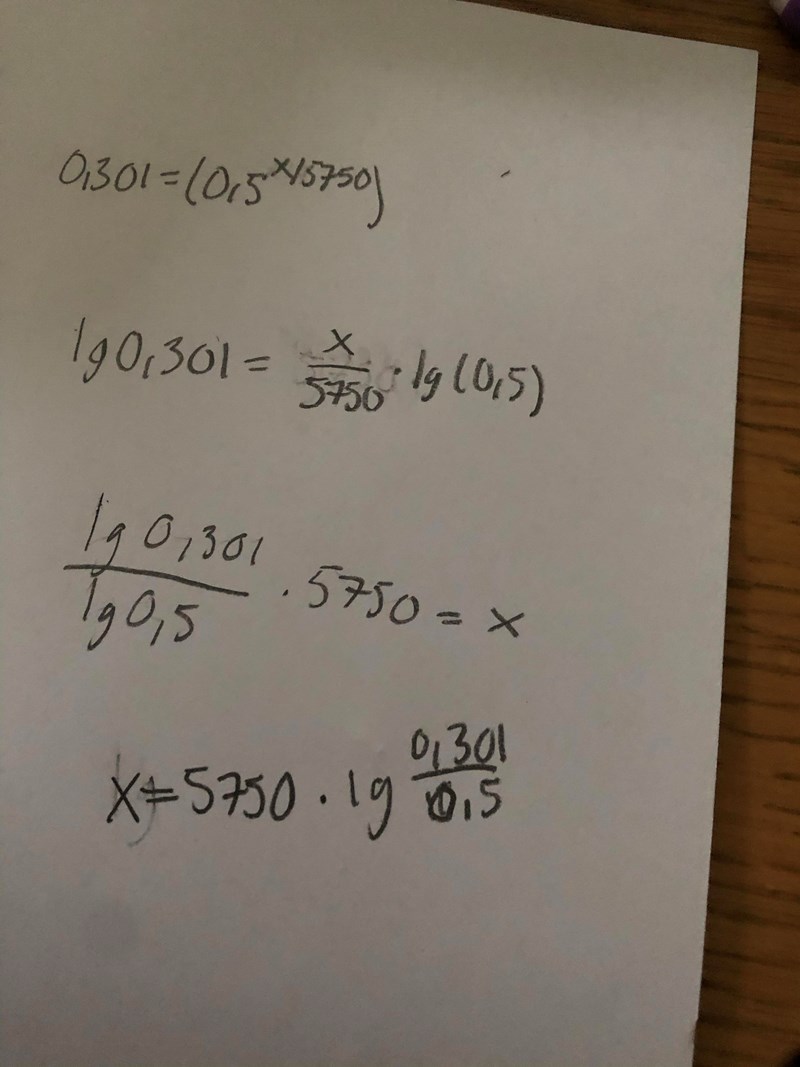 0,301=(0,5^x/5750)
lg0,301= x/5750 · lg(0,5)
lg0,301/lg0,5 · 5750 = x
x=5750 · lg 0,301/0,5